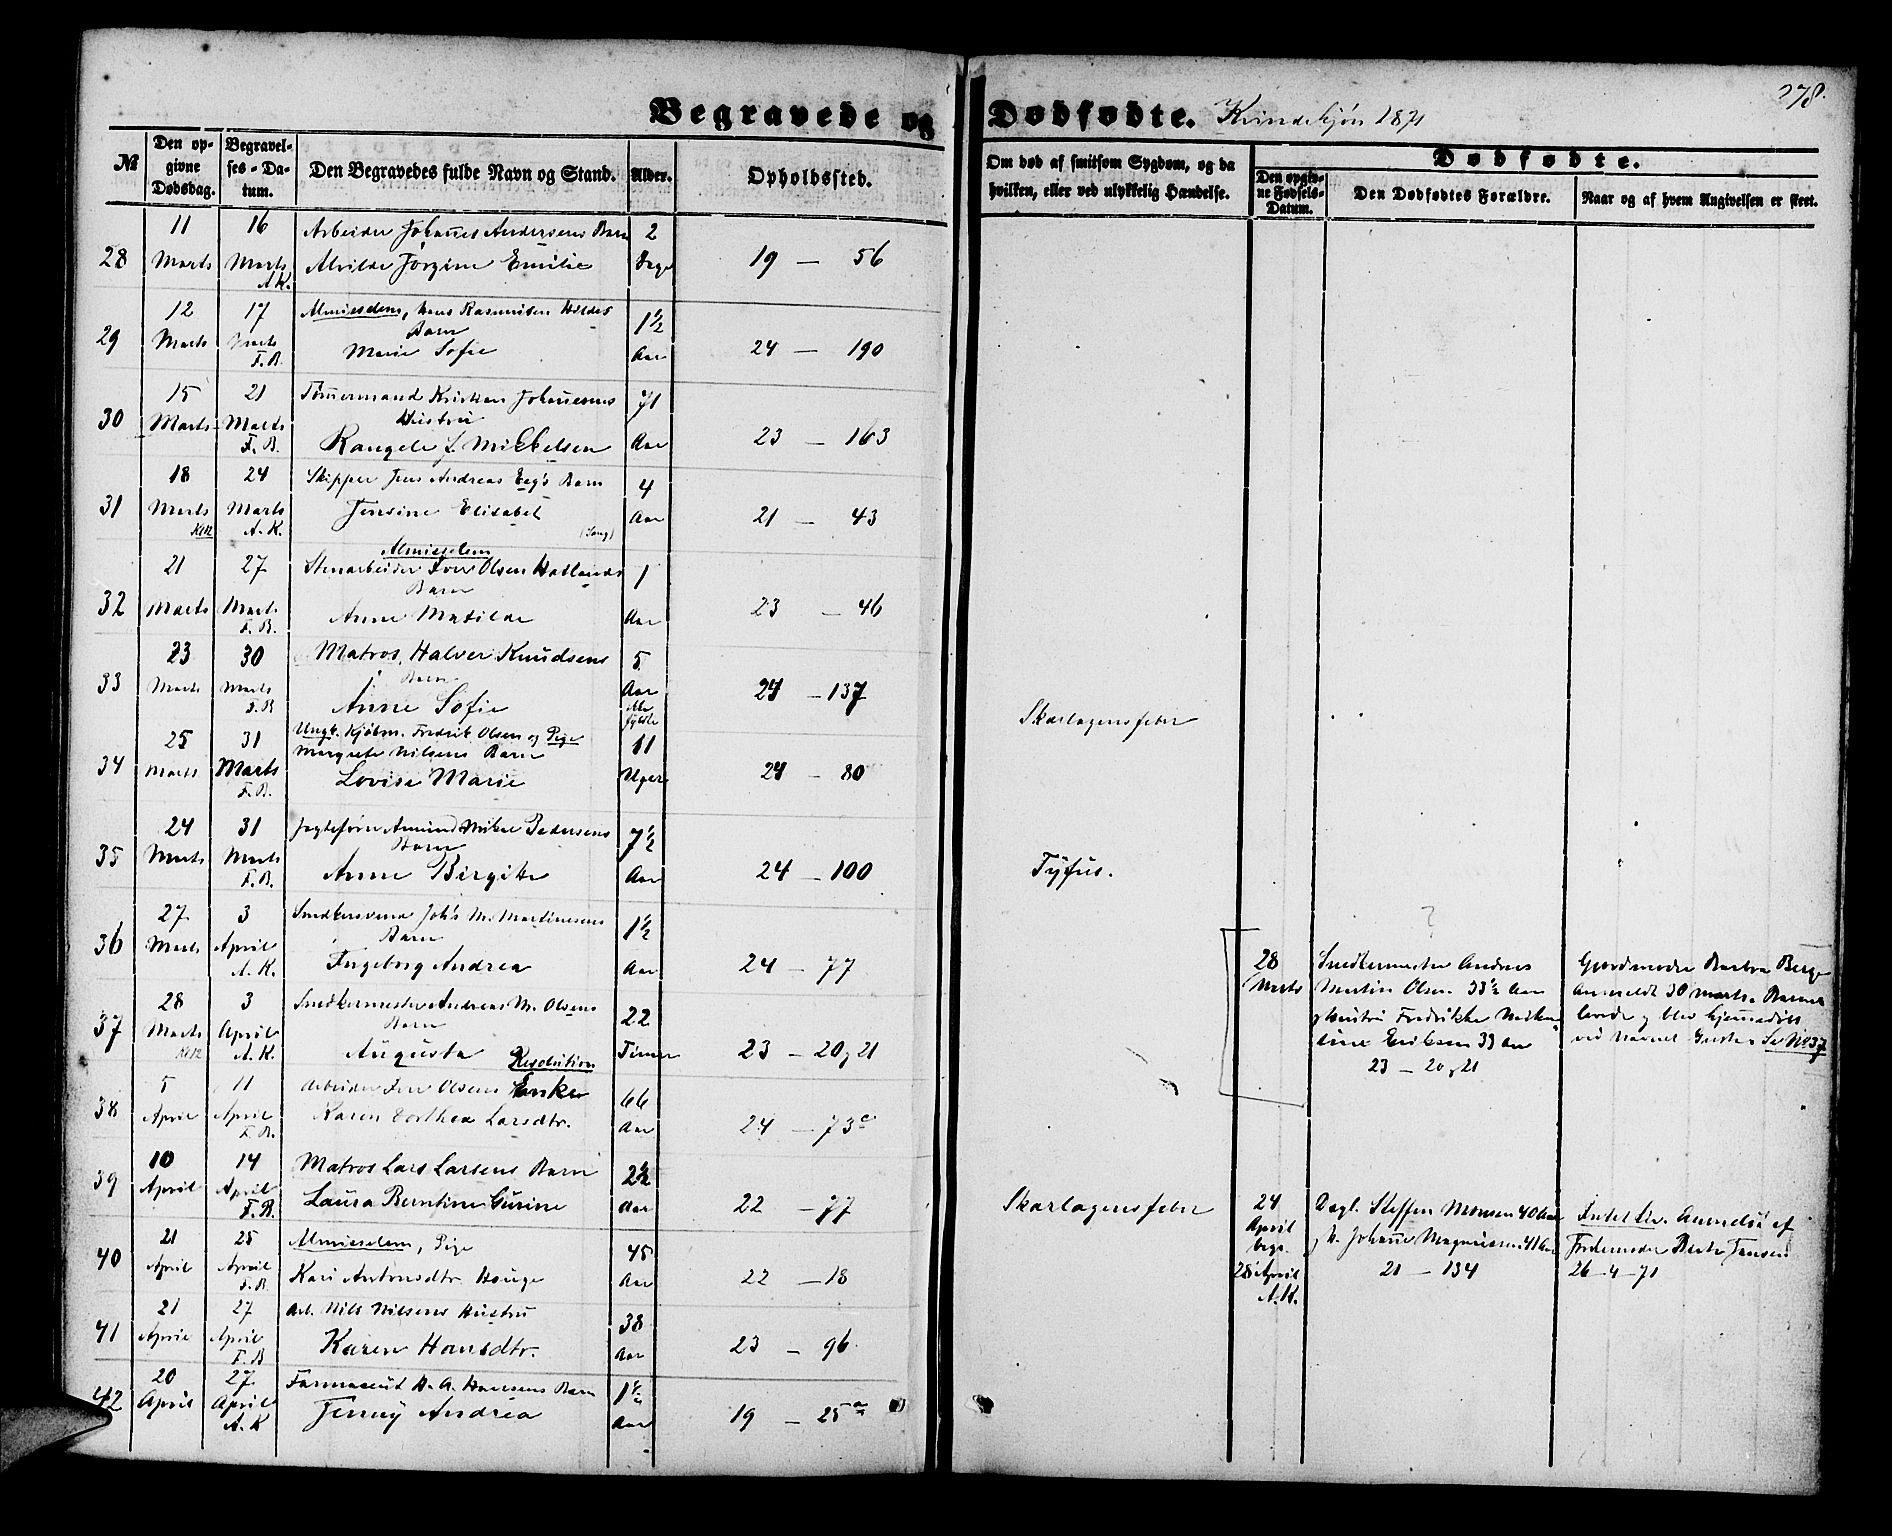 278.
Begravede og Dødfødte. Kvindekjøn 1871
№
Den opgivne Dødsdag.
Begravelses-Datum.
Den Begravedes fulde Navn og Stand.
Alder.
Opholdssted.
Om død af smitsom Sygdom, og da hvilken, eller ved ulykkelig Hændelse.
Dødfødte.
Den opgivne Fødsels-Datum.
Den Dødfødtes Forældre.
Naar og af hvem Angivelsen er skeet.
28 11 Marts 16 Marts A.K. Arbeider Johannes Andersens Barn
Alvilde Jørgine Emilie 2 Dage 19 — 56
29 12 Marts 17 Marts F.B. Almisselem, Hans Rasmussen
Barn
Marie Sofie 1½ Aar 24 — 190
30 15 Marts 21 Marts F.B. Tømmermand Kristian Johannesens
Hustru
Rangele f. Mikkelsen 71 Aar 23 — 163
31 18 Marts 24 Marts A.K. Skipper Jens Andreas Eeg's Barn
Jensine Elisabet 4 Aar 21 — 43
32 21 Marts 27 Marts F.B. Almisselem
Stenarbeider Iver Olsen Hatlands
Barn
Anne Matilde 1 Aar 23 — 46
33 23 Marts 30 Marts F.B. Matros, Halver Knudsens
Barn
Anne Sofie 5 Aar 24 — 137 Skarlagensfeber
34 25 Marts 31 Marts F.B. Ungk. Kjøbm. Fredrik Olsen og Pige
Margrete Nilsens Barn
Lovise Marie 11 Uger 24 — 80
35 24 Marts 31 Marts F.B. Jagtefører Amund Mikal Pedersens
Barn
Anne Birgite 7½ Aar 24 — 100 Tyfus.
36 27 Marts 3 April A.K. Snedkersvend Joh's M. Martinesens
Barn
Ingeborg Andrea 1½ Aar 24 — 77
37 28 Marts 3 April A.K. Snedkermester Andreas M. Olsens
Barn
Augusta 22 Timer 23 — 20 og 21
28 Marts
Snedkermester Andreas
Martin Olsen 33½ Aar
og Hustru Fredrikke
Eriksen 33 Aar
23 — 20 og 21
Gjordmoder Barbra Berge
anmeldt 30 marts. Barnet
levede og blev hjemmedøbt
ved Navnet Se No 37
38 5 April 11 April F.B. Resolution
Arbeider Iver Olsens Enke
Karen Dorthea Larsdtr. 66 Aar 24 — 73c
39 10 April 14 April F.B. Matros Lars Larsens Barn
Laura Berntine Gurine 2½ Aar 22 — 77 Skarlagensfeber
24 April begr. 28 April A.K.
Dagl. Steffen Monsen 40 Aar
og H. Johanne Magnussen 41 Aar
21 — 134
Intet Liv. Anmeldt af
Jordemoder Berte Jansen
26-4-71
40 21 April 25 April F.B. Almisselem, Pige
Kari Antonsdtr. Hauge 45 Aar 22 — 18
41 21 April 27 April F.B. Arb. Nils Nilsens Hustru
Karen Hansdtr. 38 Aar 23 — 96.
42 20 April 27 April A.K. Farmaceut H. A. Hansens Barn
Jenny Andrea 1½ Aar 19 — 25a